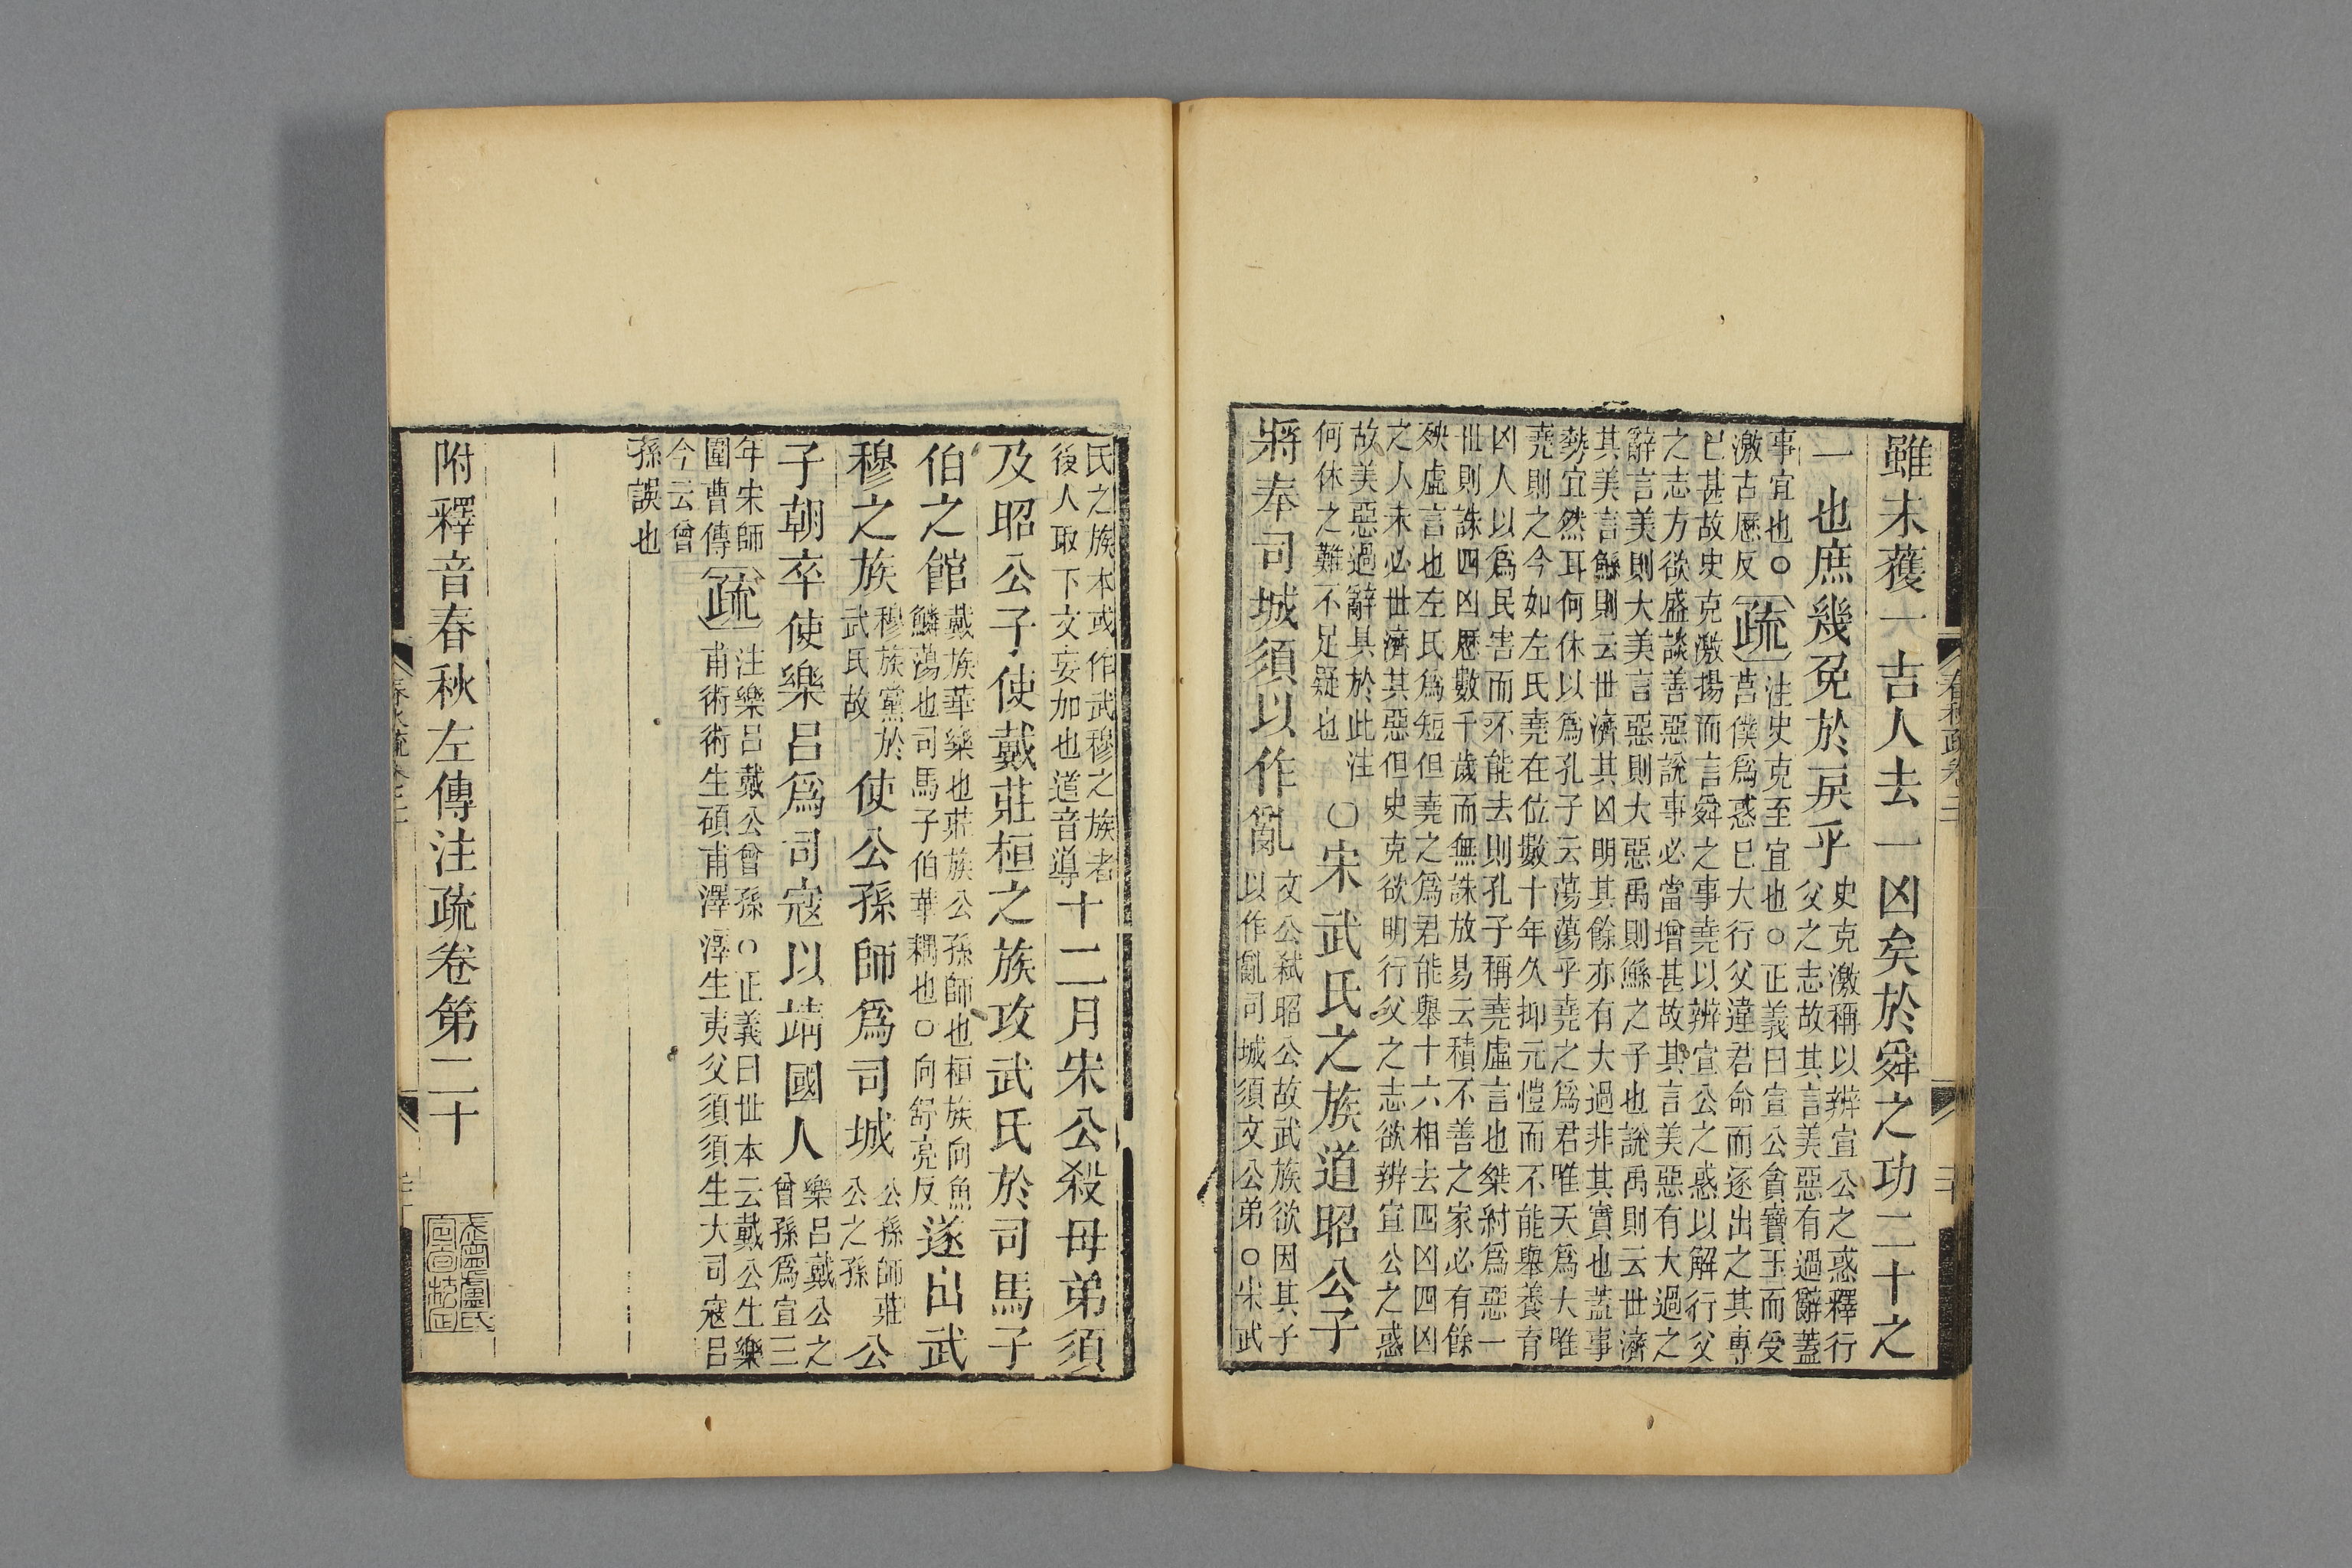 雖未獲一吉人去一凶矣於舜之功二十之
一也庶幾免於戾乎
史克激稱以辨宣公之惑釋行
父之志故其言美惡有過辭蓋
事宜也○
激古歷反
疏
注史克至宜也○正義曰宣公貪寶玉而受
莒僕爲惑已大行父違君命而逐出之其專
已甚故史克激揚而言舜之事堯以辨宣公之惑以解行父
之志方欲盛談善惡說事必當增甚故其言美惡有大過之
辭言美則大美言惡則大惡禹則鯀之子也說禹則云世濟
其美言鯀則云世濟其凶明其餘亦有大過非其實也蓋事
勢宜然耳何休以爲孔子云蕩蕩乎堯之爲君唯天爲大唯
堯則之今如左氏堯在位數十年久抑元愷而不能舉養育
凶人以爲民害而不能去則孔子稱堯虛言也桀紂爲惡一
世則誅四凶歷數千歲而無誅放易云積不善之家必有餘
殃虛言也左氏爲短但堯之爲君能舉十六相去四凶四凶
之人未必世濟其惡但史克欲明行父之志欲辨宣公之惑
故美惡過辭具於此注
何休之難不足疑也
○宋武氏之族道昭公子
將奉司城須以作亂
文公弒昭公故武族欲因其子
以作亂司城須文公弟○宋武
氏之族本或作武穆之族者
後人取下文妄加也道音導
十二月宋公殺母弟須
及昭公子使戴莊桓之族攻武氏於司馬子
伯之館
戴族華樂也莊族公孫師也桓族向魚
鱗蕩也司馬子伯華耦也○向舒亮反
遂出武
穆之族
穆族黨於
武氏故
使公孫師爲司城
公孫師莊
公之孫
公
子朝卒使樂呂爲司寇以靖國人
樂呂戴公之
曾孫爲宣三
年宋師
圍曹傳
疏
注樂呂戴公曾孫○正義曰世本云戴公生樂
甫術術生碩甫澤澤生夷父須須生大司寇呂
今云曾
孫誤也
附釋音春秋左傳注疏卷第二十